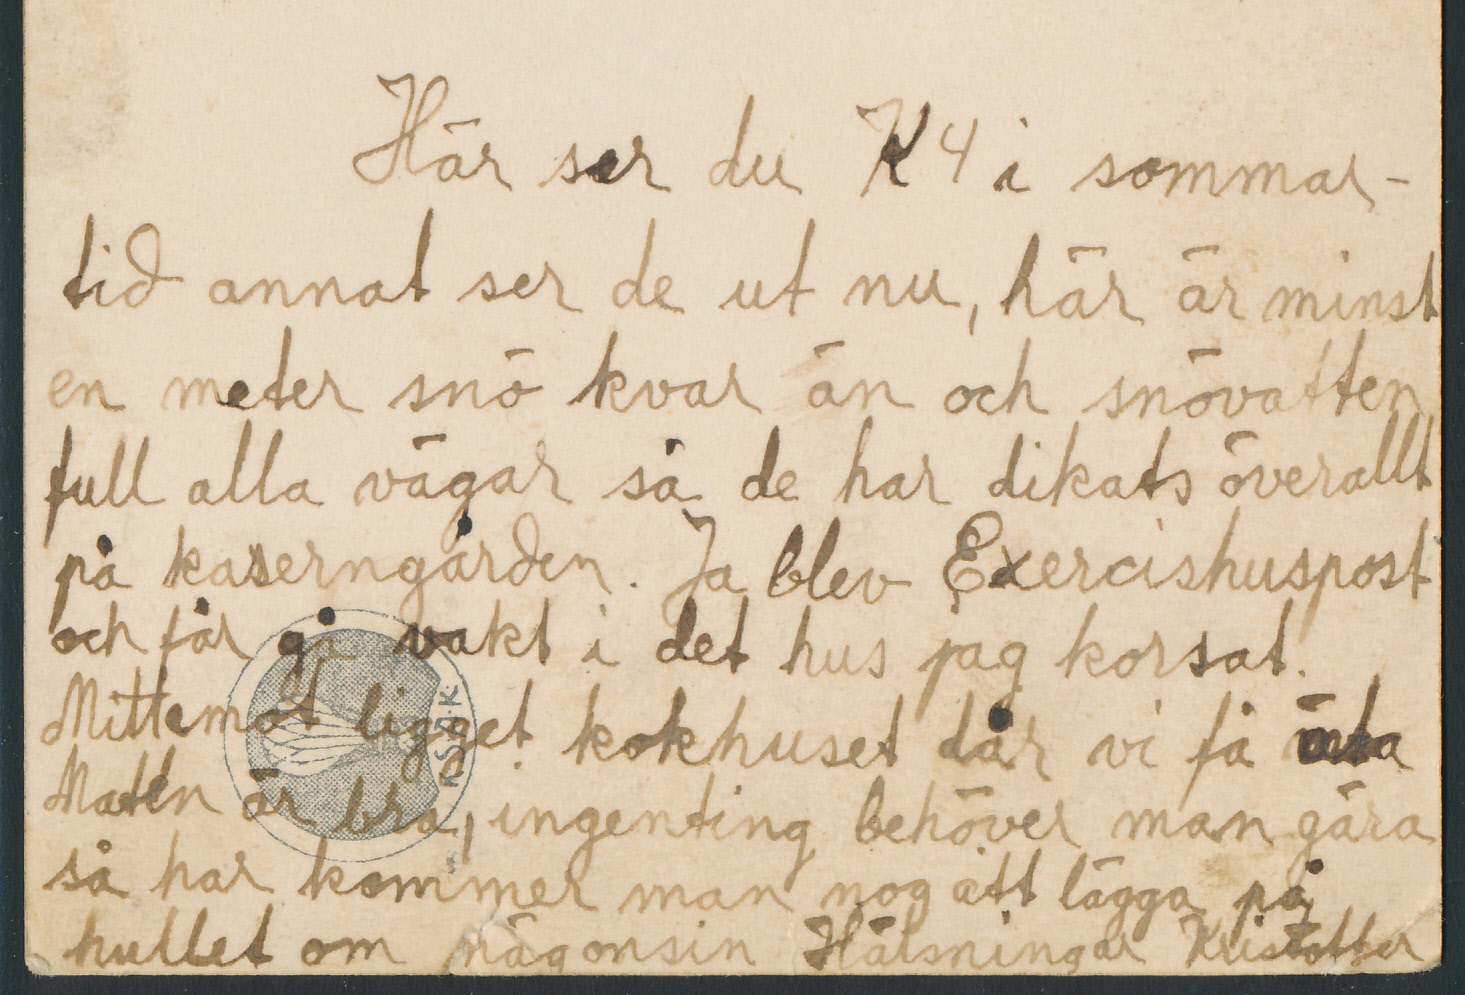 Här ser du K4 i sommar-
tid annat ser de ut nu, här är minst
en meter snö kvar än och snövatten
full alla vägar så de har dikats överallt
på kaserngården. Ja blev Exercishuspost
och får gå vakt i det hus jag korsat.
Mittemot ligget kokhuset där vi få äta
Maten är bra, ingenting behöver man göra
så har kommer man nog att lägga på
hullet om någonsin Hälsningar Kristoffer